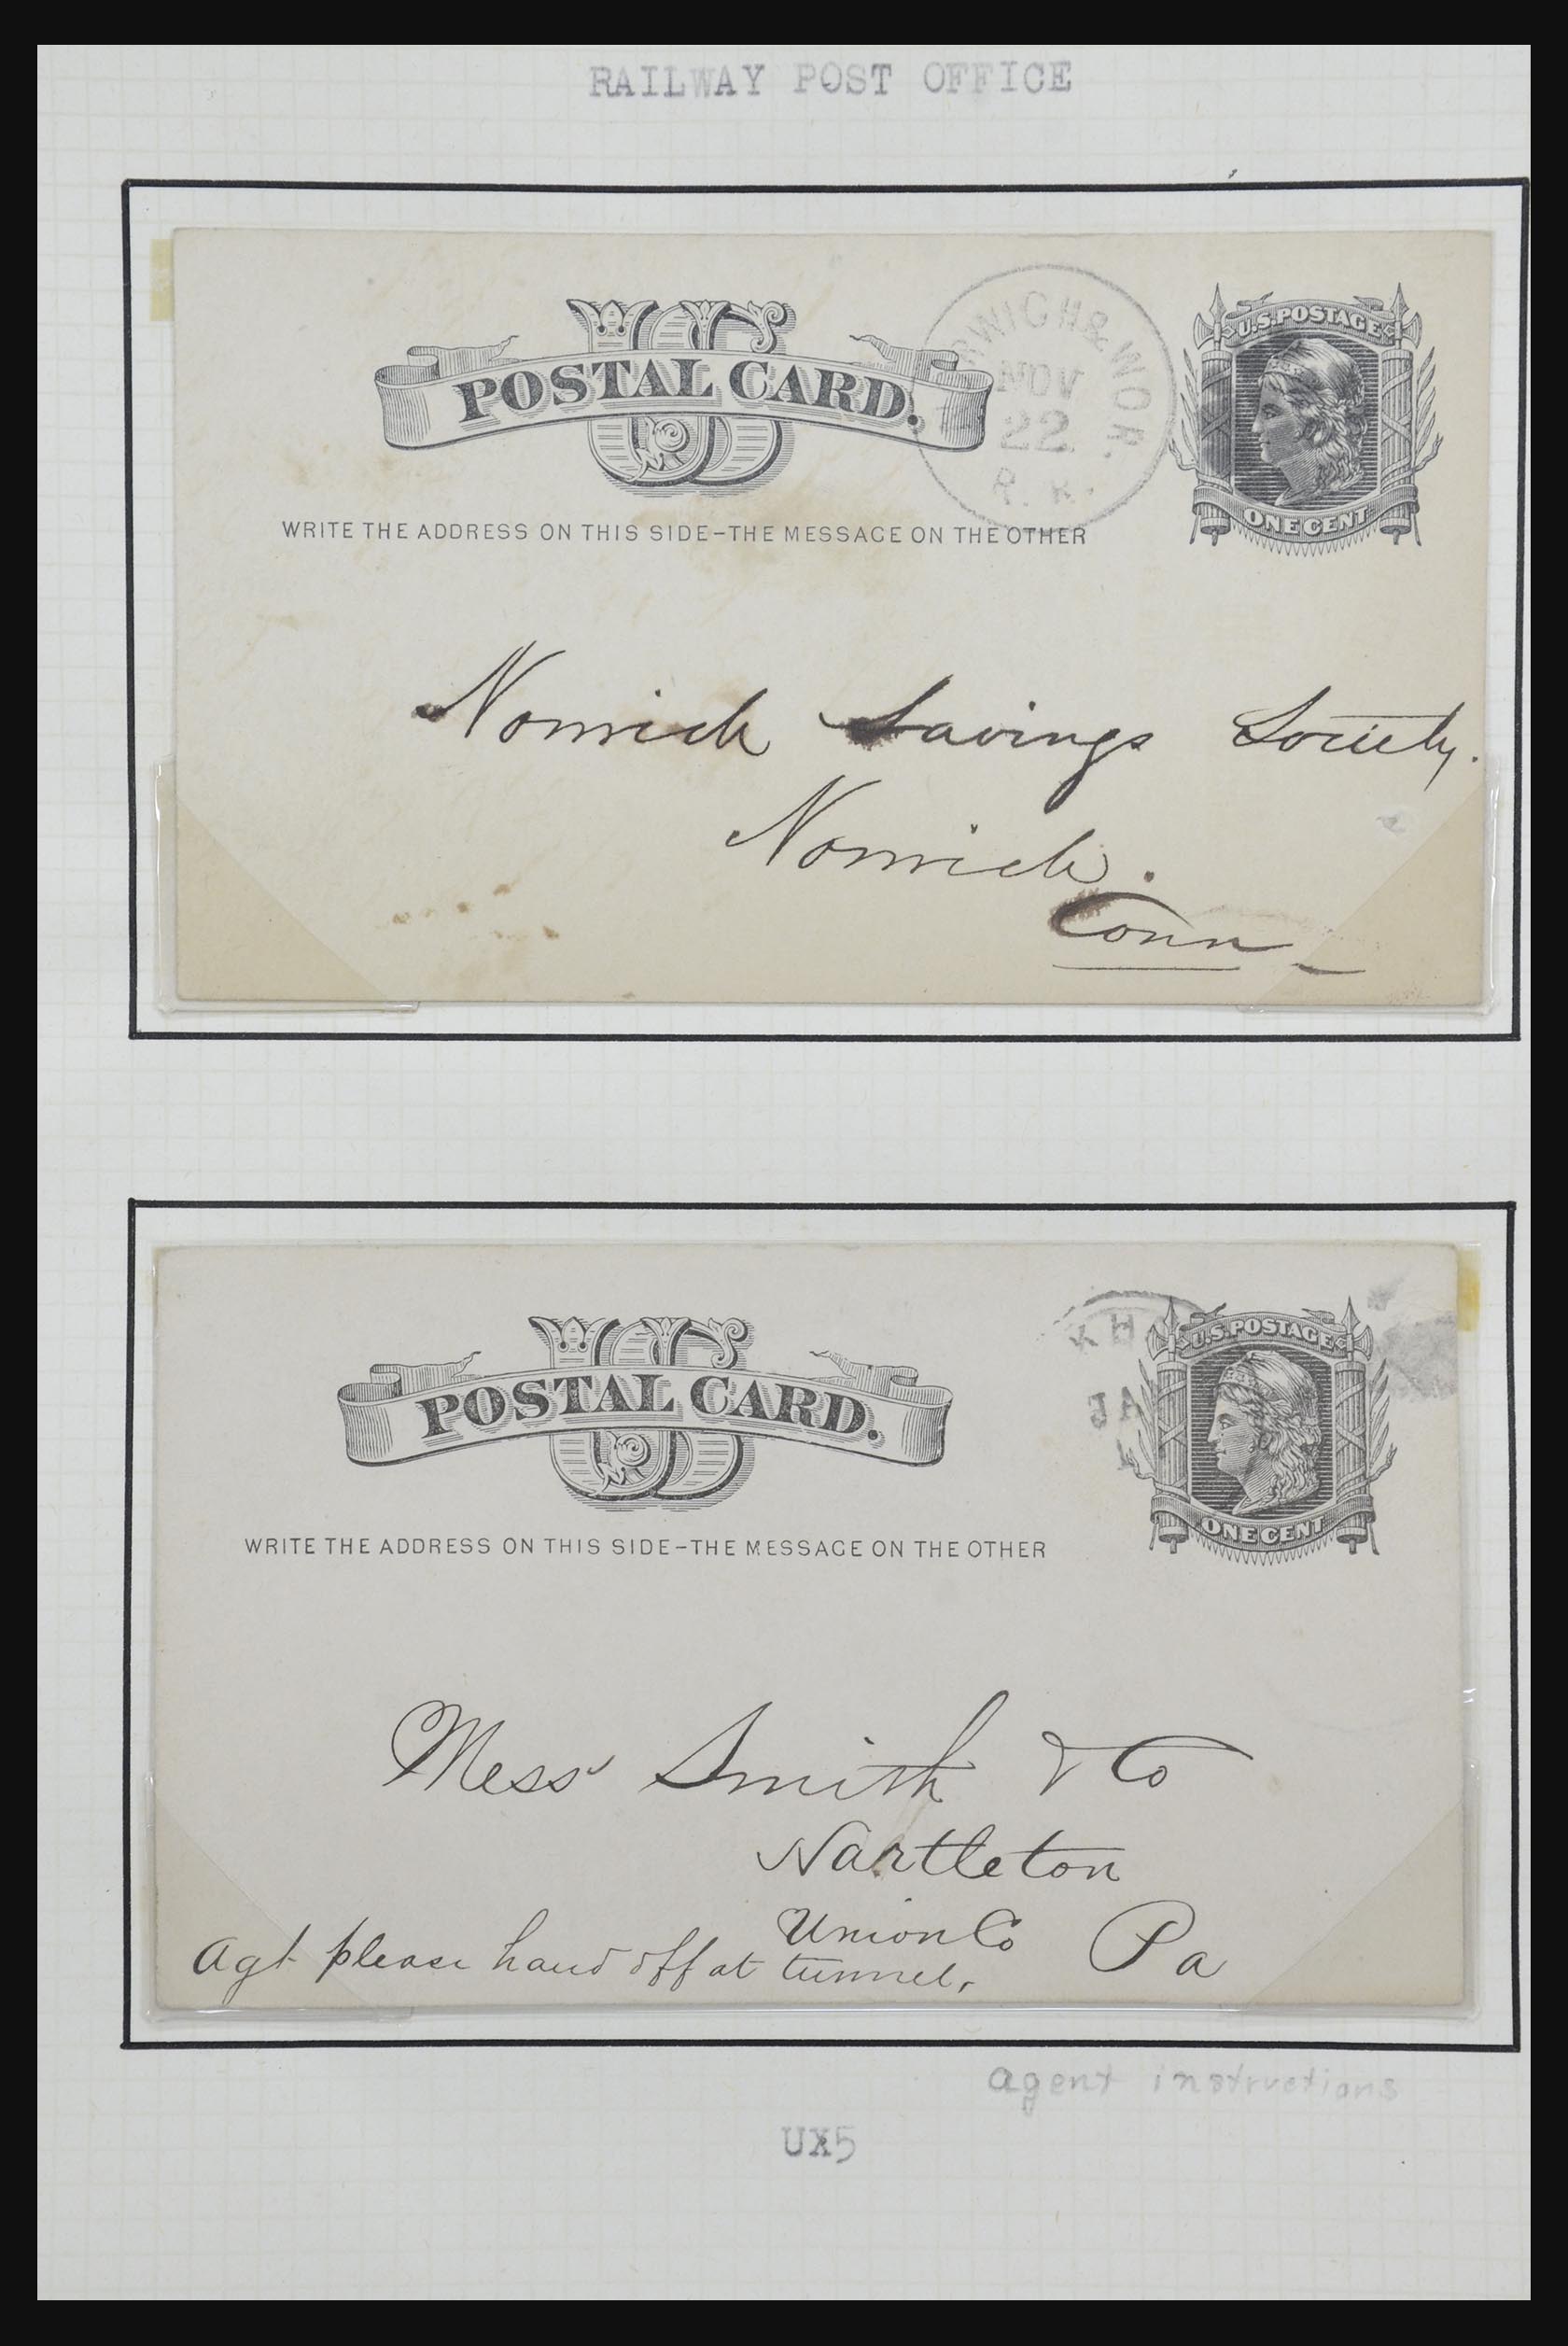 RAILWAY POST OFFICE
US
POSTAL CARD.
WRITE THE ADDRESS ON THIS SIDE-THE MESSAGE ON THE OTHER
RWICH & WOR.
NOV
22
R. R.
U.S. POSTAGE
ONE CENT
Norwich Savings Society.
Norwich.
Conn
US
POSTAL CARD.
WRITE THE ADDRESS ON THIS SIDE-THE MESSAGE ON THE OTHER
K H
JA
U.S. POSTAGE
ONE CENT
Mess Smith & Co
Hartleton
Union Co Pa
Agt please hand off at tunnel,
agent instructions
UX5